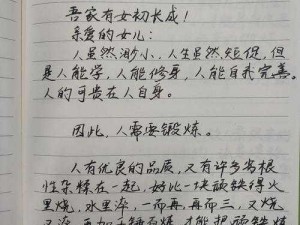 吾家有女初长成！
亲爱的女儿：
人虽然渺小，人生虽然短促，但
是人能学，人能修身，人能自我完善。
人的可贵在人自身。
因此，人需要锻炼。
人有优良的品质，又有许多劣根
性杂糅在一起，好比一块顽铁得火
里烧，水里淬，一而再，再而三，又烧
又淬，再加千锤百炼，才能把顽铁炼